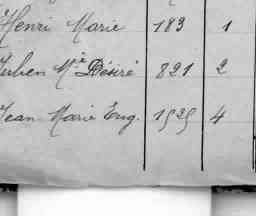 Henri Marie 183 1
Julien Mie Désiré 821 2
Jean Marie Eug. 1525 4